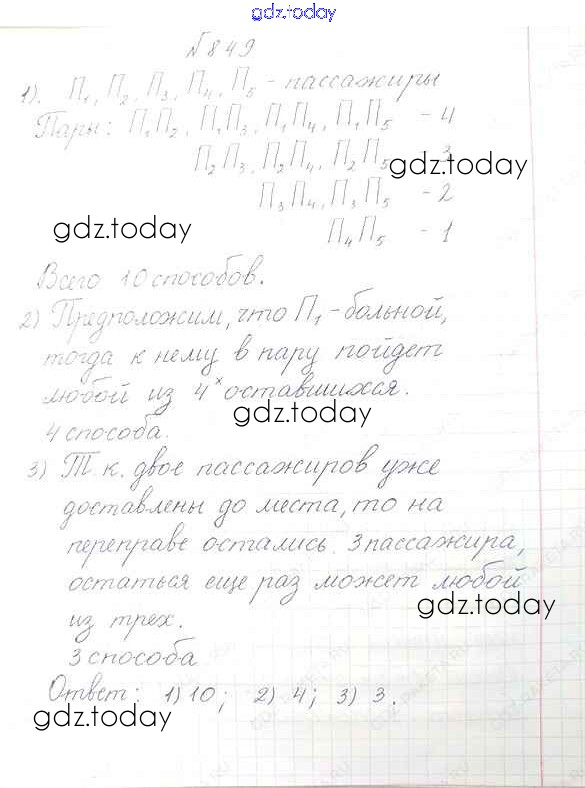 gdz.today
№849
1). П₁, П₂, П₃, П₄, П₅ - пассажиры
Пары: П₁П₂, П₁П₃, П₁П₄, П₁П₅ - 4
П₂П₃, П₂П₄, П₂П₅ - 3
gdz.today
П₃П₄, П₃П₅ - 2
gdz.today
П₄П₅ - 1
Всего 10 способов.
2) Предположим, что П₁ - больной,
тогда к нему в пару пойдет
любой из 4ˣ оставшихся.
gdz.today
4 способа.
3) Т.к. двое пассажиров уже
доставлены до места, то на
переправе остались 3 пассажира,
остаться еще раз может любой
gdz.today
из трех.
3 способа
Ответ: 1) 10; 2) 4; 3) 3.
gdz.today